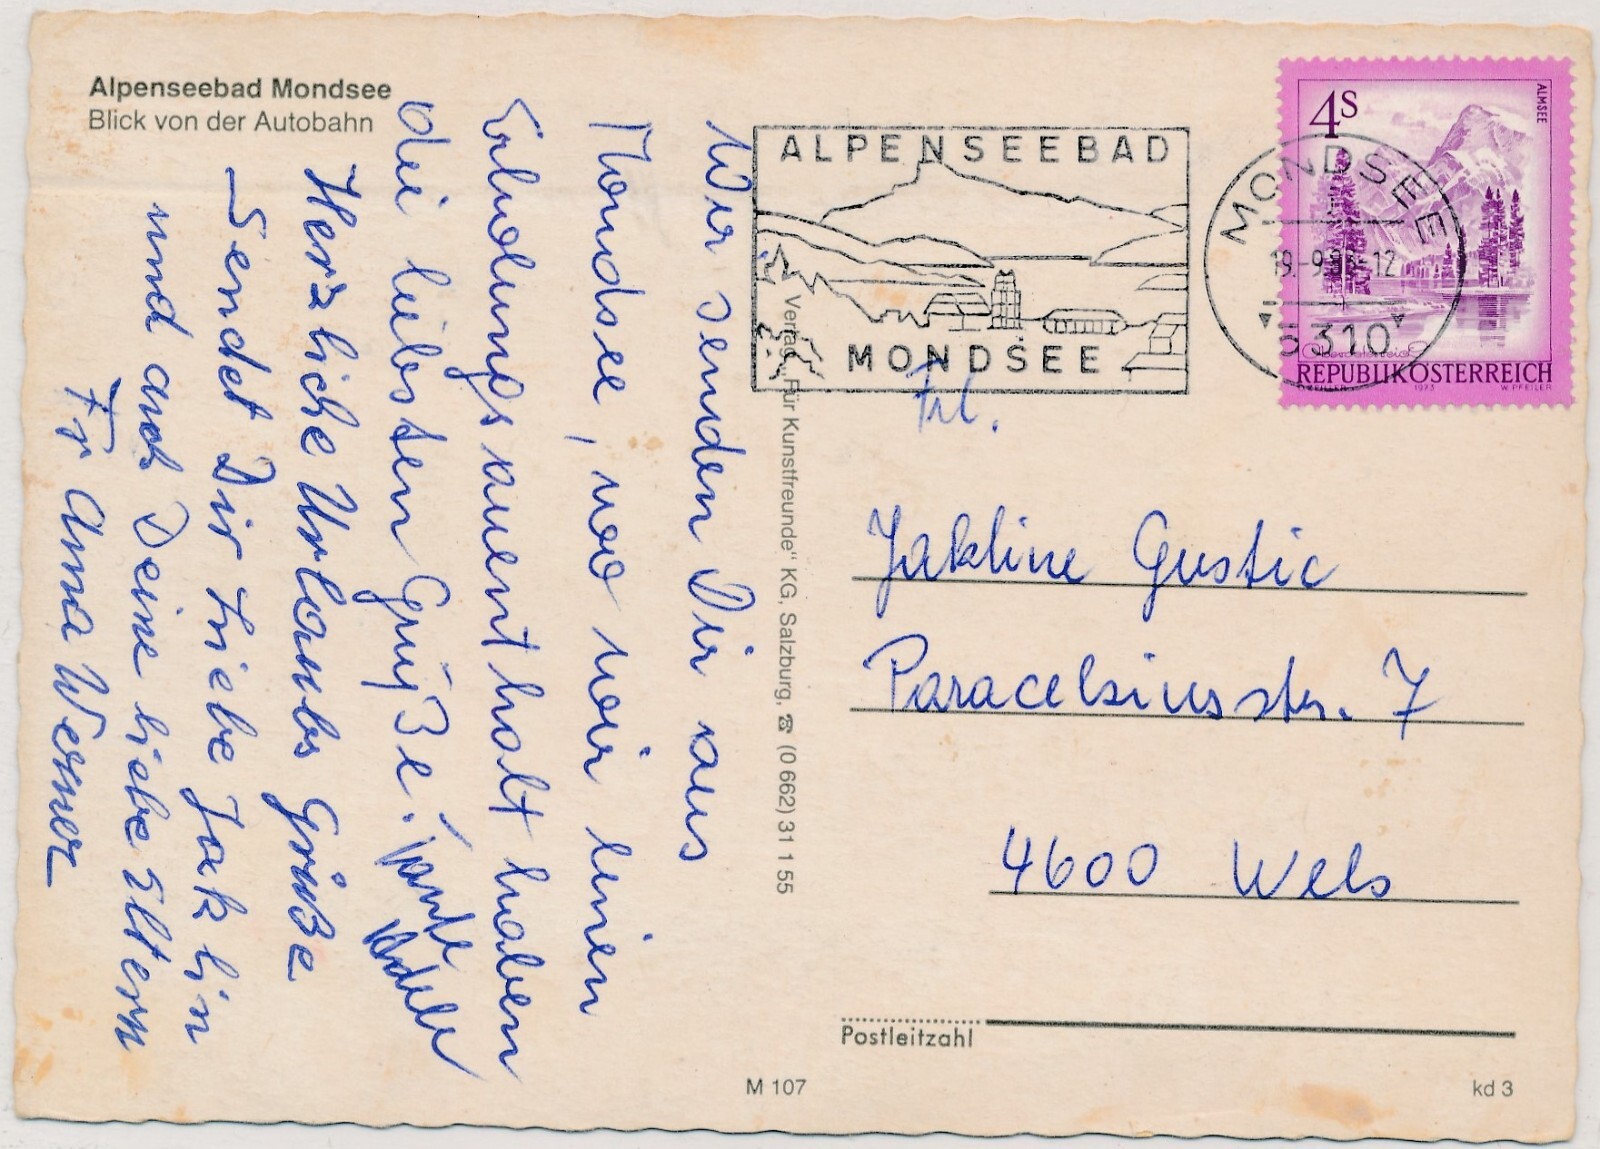 Alpenseebad Mondsee
Blick von der Autobahn
Wir senden Dir aus
Mondsee, wo wir einen
Erholungsauenthalt haben
die liebsten Grüße!
Tante
Adele
Herzliche Urlaubs Grüße
Sendet Dir Liebe Jaklin
und auch Deine liebe Eltern
Fr Anna Werner
Verlag „Für Kunstfreunde“ KG, Salzburg, ☎ (0 662) 31 1 55
ALPENSEEBAD
MONDSEE
MONDSEE
5310
4S
ALMSEE
REPUBLIK ÖSTERREICH
1973
W. PFEILER
Frl.
Jakline Gustic
Paracelsiusstr. 7
4600 Wels
Postleitzahl
M 107
kd 3